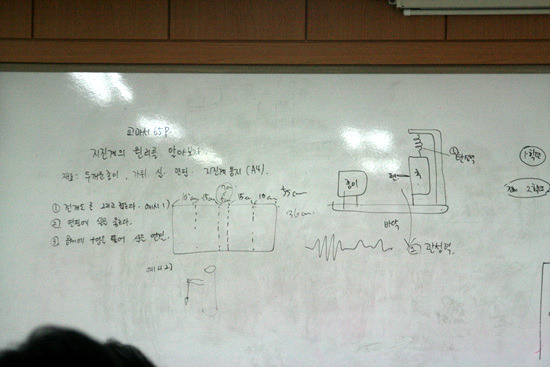 교과서 65P.
지진계의 원리를 알아보자
재료: 두꺼운종이, 가위, 실, 연필, 지진계 용지 (A4).
10cm 15cm 5cm 15cm 10cm
36cm
① 전개도를 그리고 오린다. 예시1)
② 연필에 실을
③ 종이에 구멍을 뚫어 실로 연결.
예시2)
① 탄성력
종이
펜
추
바닥
② 관성력.
1학년
2학년